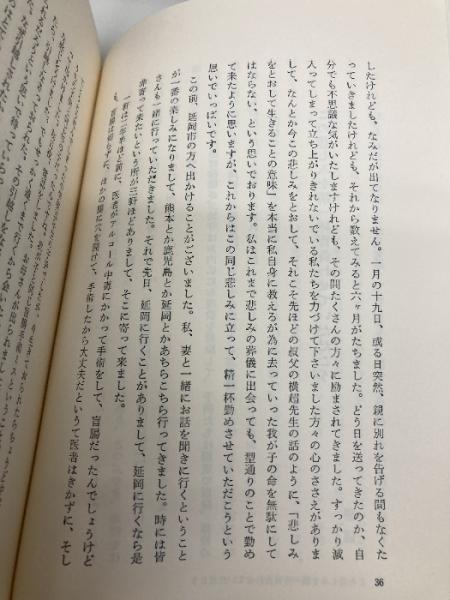 したけれども、なみだが出てなりません。一月の十九日、或る日突然、鏡に別れを告げる間もなくた
っていきましたけれども、それから数えてみると六ヶ月がたちました。どう日を送ってきたのか、自
分でも不思議な気がいたしますけれども、その間たくさんの方々に励まされてきました。すっかり滅
入ってしまって立ち上がりきれないでいる私たちを力づけて下さいました方々の心のささえがありま
して、なんとか今この悲しみをとおして、それこそ先ほどの叔父の横超先生の話のように、「悲しみ
をとおして生きることの意味」を本当に私自身に教えるが為に去っていった我が子の命を無駄にして
はならない、という思いでおります。私はこれまで悲しみの葬儀に出会っても、型通りのことで勤め
て来たように思いますが、これからはこの同じ悲しみに立って、精一杯勤めさせていただこうという
思いでいっぱいです。
この前、延岡市の方へ出かけることがございました。私、妻と一緒にお話を聞きに行くということ
が一番の楽しみになりまして、熊本とか鹿児島とか延岡とかあちらこちら行ってきました。時には皆
さんも一緒に行っていただきました。それで先日、延岡に行くことがありまして、延岡に行くなら是
非寄って来たいという所が三軒ほどありまして、そこに寄って来ました。
一軒は二年半ほど前に、医者がアルコール中毒にかかって手術をして、盲腸だったんでしょうけど
も、盲腸は切らずに、ほかの腸に穴を開けて、手術したから大丈夫だというて医者はきかずに、そし
36